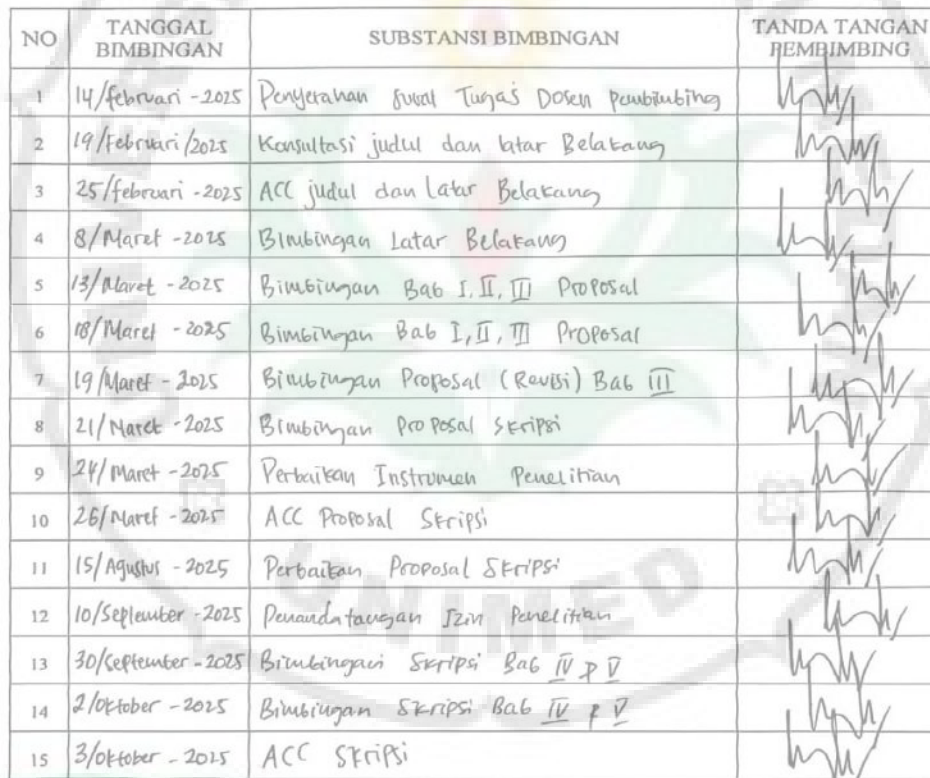 NO TANGGAL BIMBINGAN SUBSTANSI BIMBINGAN TANDA TANGAN PEMBIMBING
1 14/februari -2025 Penyerahan Surat Tugas Dosen Pembimbing
2 19/Februari/2025 Konsultasi judul dan latar Belakang
3 25/februari -2025 ACC judul dan Latar Belakang
4 8/Maret -2025 Bimbingan Latar Belakang
5 13/Maret -2025 Bimbingan Bab I, II, III Proposal
6 18/Maret -2025 Bimbingan Bab I, II, III Proposal
7 19/Maret - 2025 Bimbingan Proposal (Revisi) Bab III
8 21/Maret -2025 Bimbingan Proposal Skripsi
9 24/Maret -2025 Perbaikan Instrumen Penelitian
10 26/Maret -2025 ACC Proposal Skripsi
11 15/Agustus -2025 Perbaikan Proposal Skripsi
12 10/September -2025 Penandatangan Izin Penelitian
13 30/September -2025 Bimbingan Skripsi Bab IV & V
14 2/Oktober -2025 Bimbingan Skripsi Bab IV & V
15 3/Oktober -2025 ACC Skripsi
UNIMED